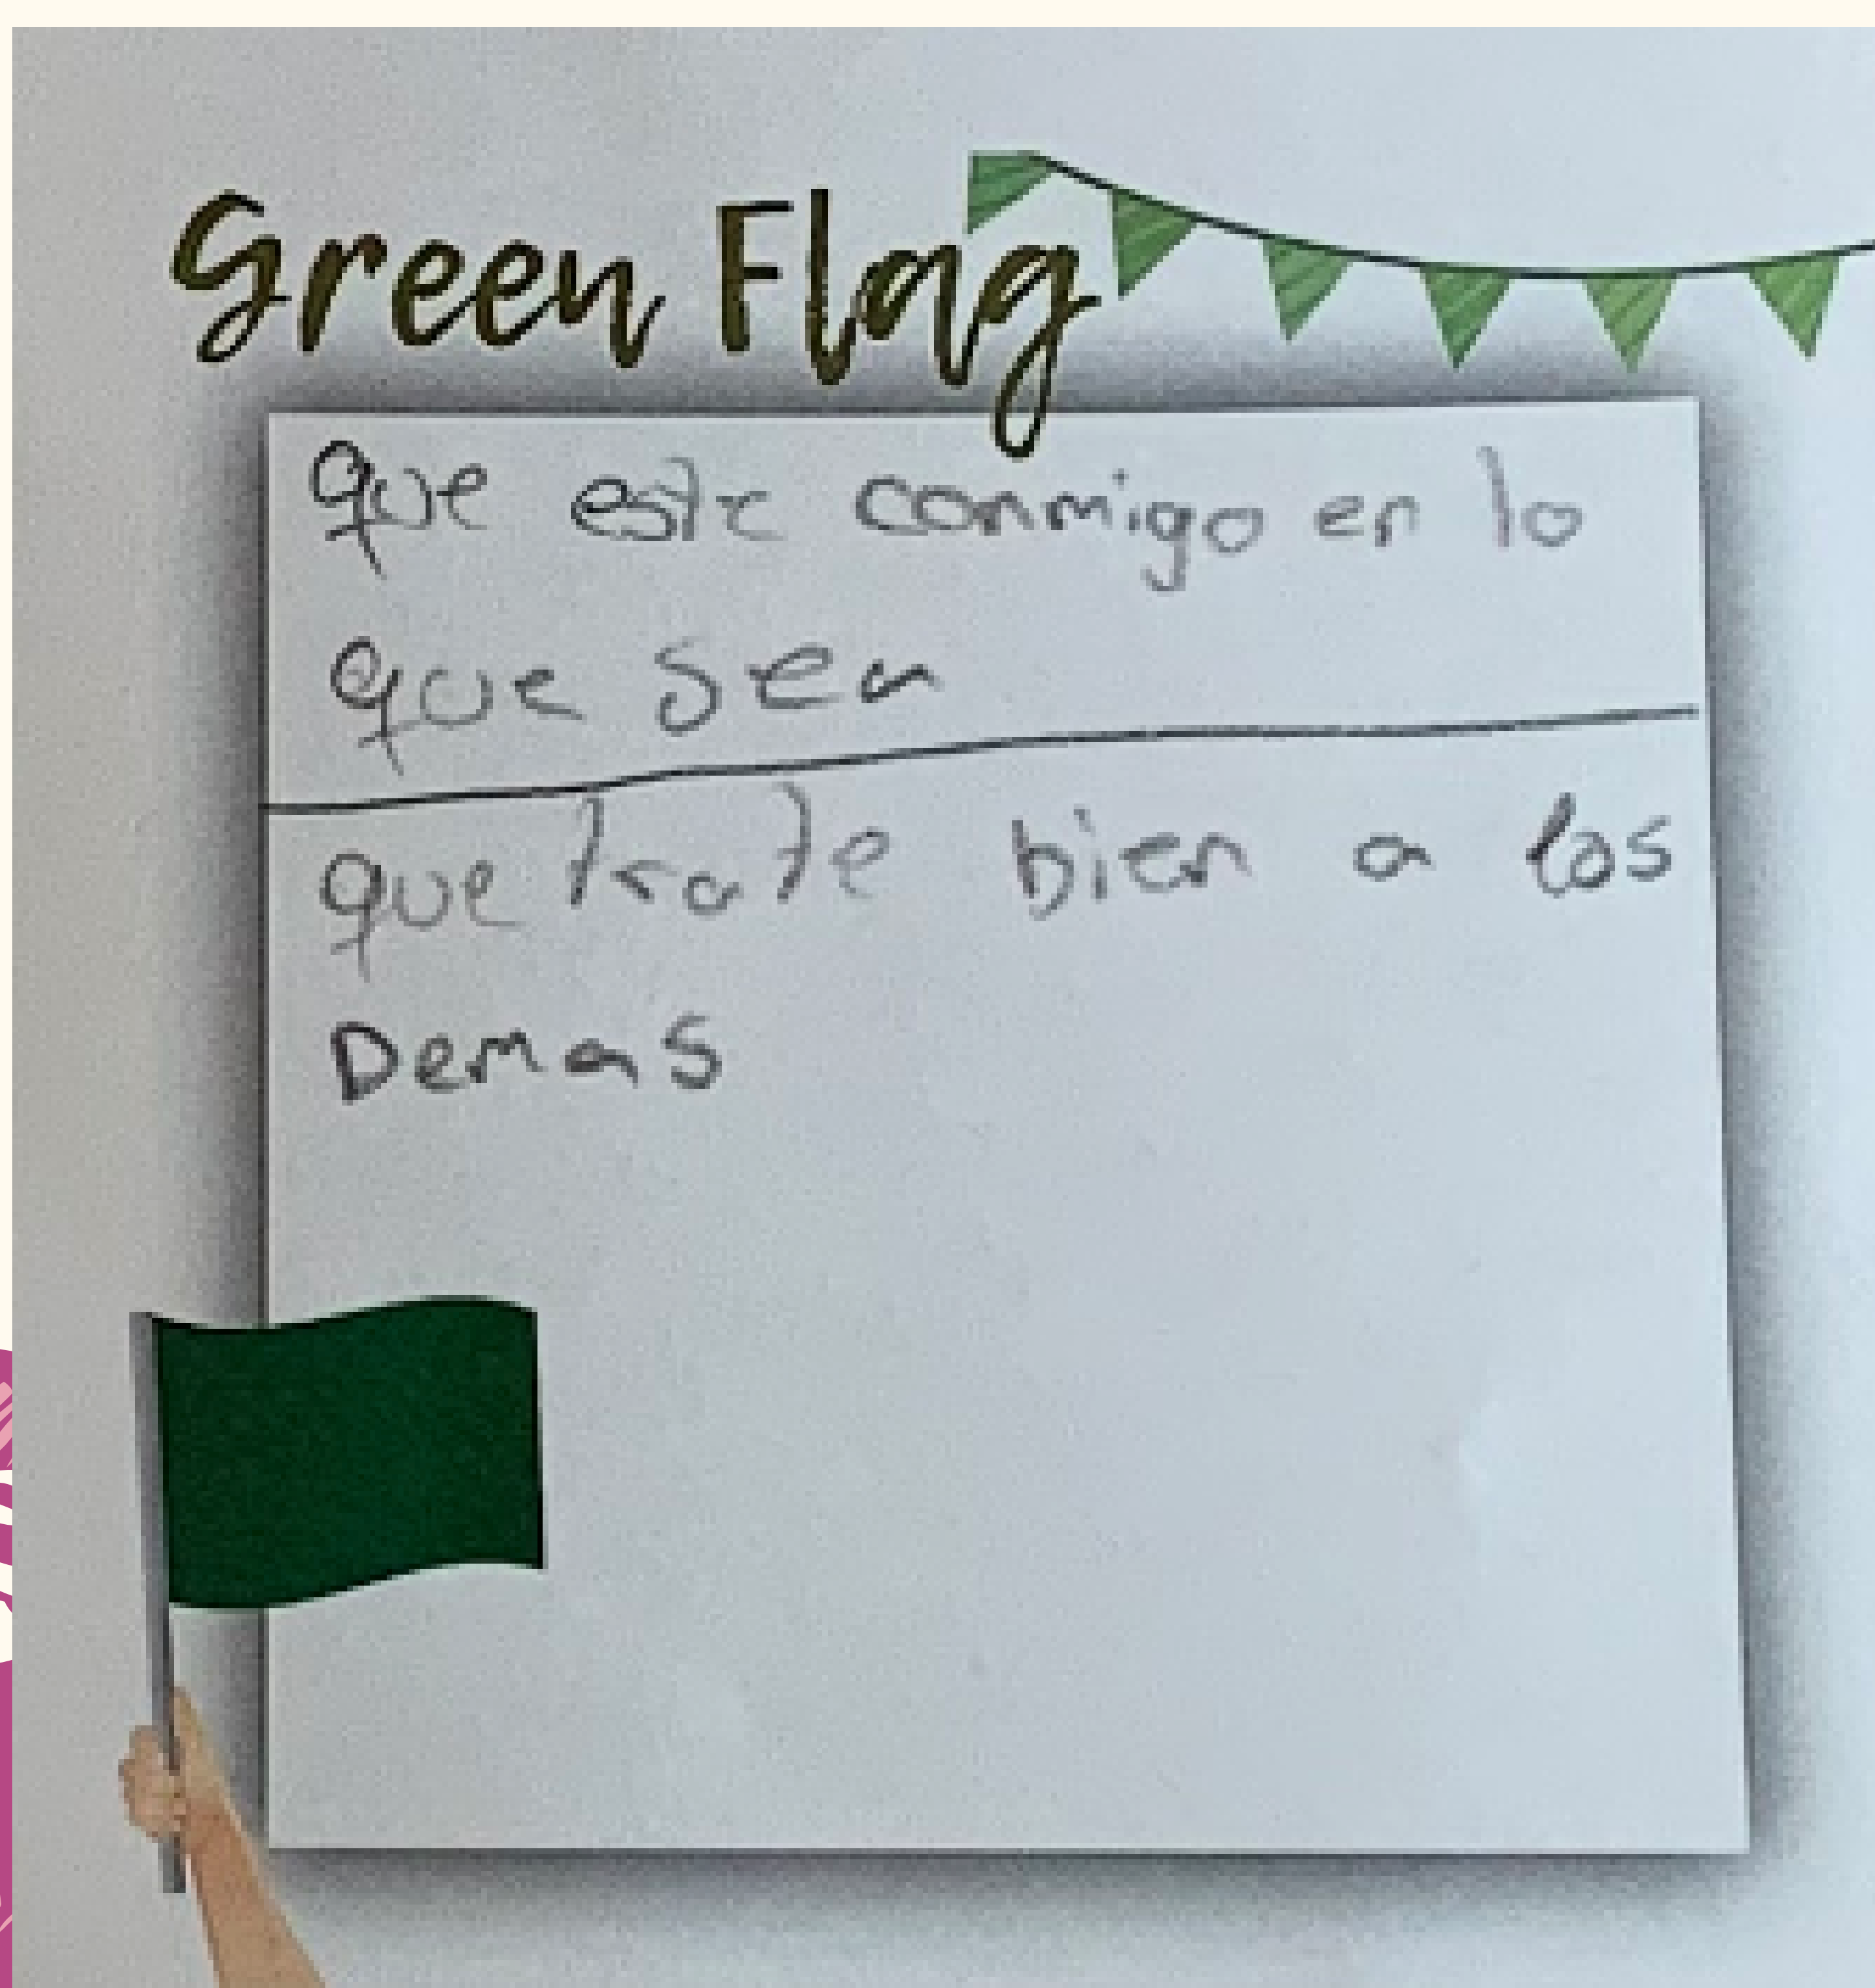 Green Flag
que este conmigo en lo
que sea
que trate bien a los
Demas